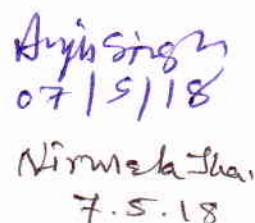 Arjit Singh
07/5/18
Nirmala Jha.
7.5.18